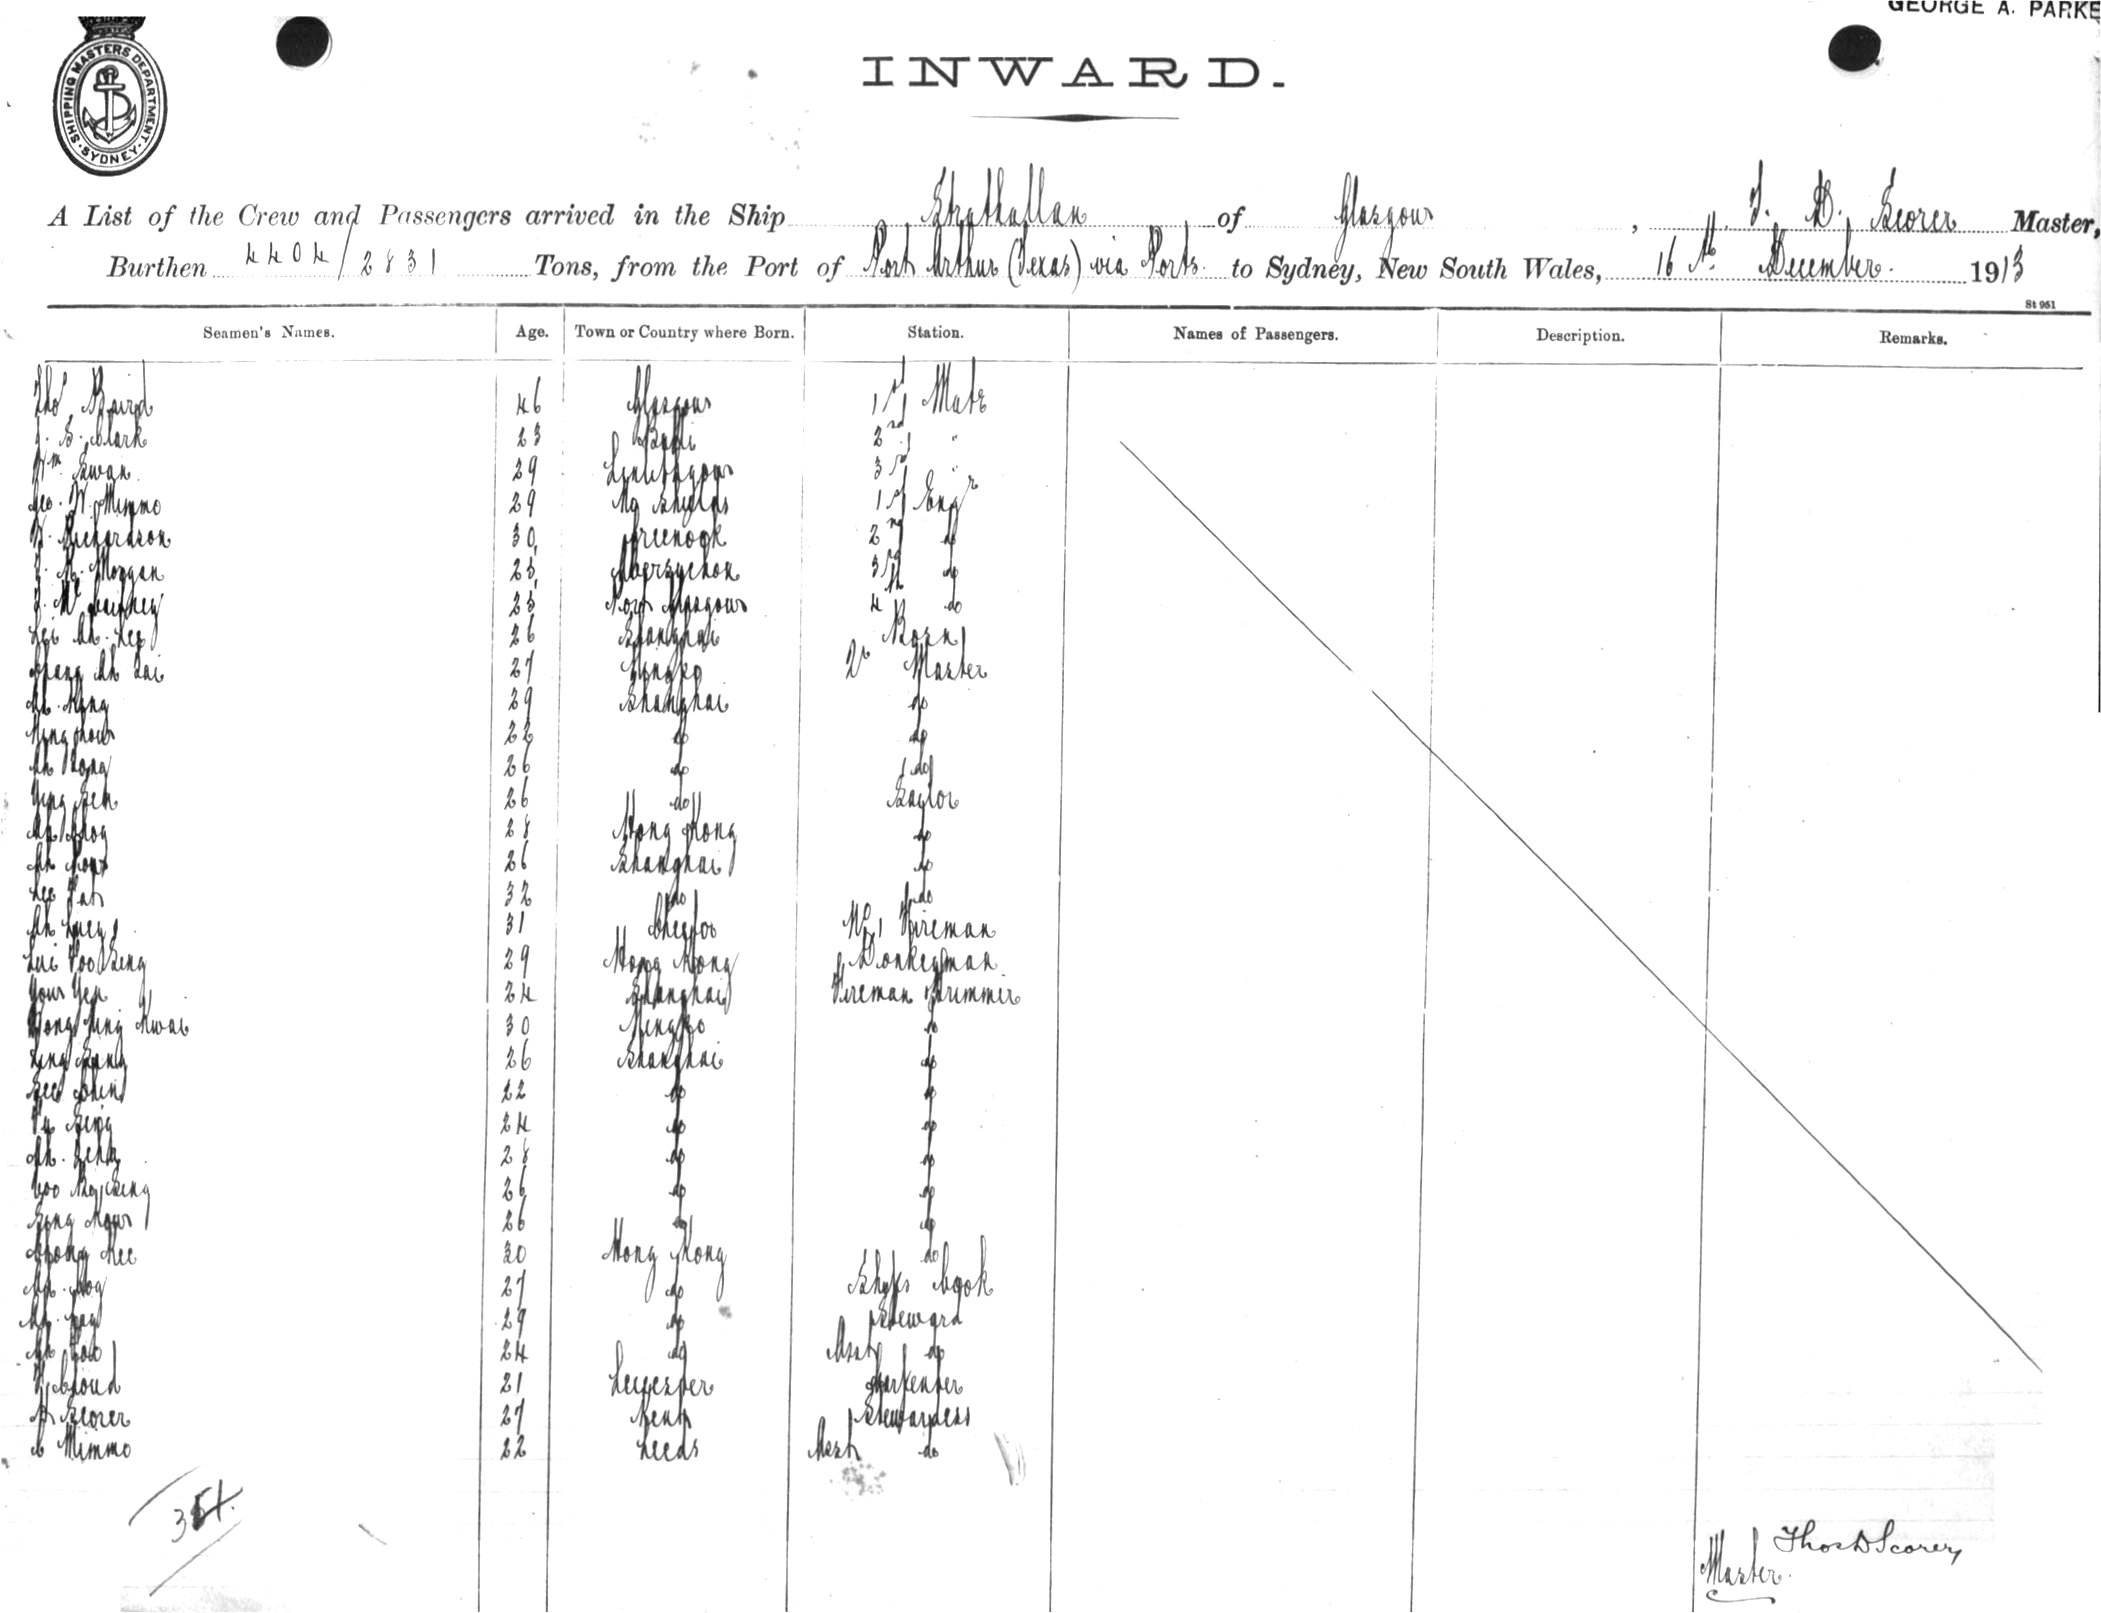 GEORGE A. PARKE
SHIPPING MASTERS DEPARTMENT
SYDNEY
INWARD.
A List of the Crew and Passengers arrived in the Ship Strathallan of Glasgow, T. D. Scorer Master,
Burthen 4404/2831 Tons, from the Port of Port Arthur (Texas) via Ports to Sydney, New South Wales, 16th December. 1913
St 951
Seamen's Names. Age. Town or Country where Born. Station. Names of Passengers. Description. Remarks.
Thos Baird 46 Glasgow 1st Mate
J. S. Clark 23 2nd "
Wm Swan 29 Linlithgow 3rd "
Geo. W. Mimmo 29 No Shields 1st Engr
W. Richardson 30 Greenock 2nd do
J. H. Morgan 25 Abersychan 3rd do
J. Mc 25 Port Glasgow 4th do
Lei Ah Lee 26 Shanghai Bosn
Chang Ah Lai 27 Ningpo Qr Master
Ah Kong 29 Shanghai do
Ming Chow 22 do do
Ah Bong 26 do do
Ying Sen 26 do Saylor
Ah Choy 28 Hong Kong do
Ah Kow 26 Shanghai do
Lee Fat 32 do do
Ah Luey 31 Cheefoo No 1 Fireman
Lui Foo Seng 29 Hong Kong Donkeyman
Yow Yen 24 Shanghai Fireman & Trimmer
Wong Ning Kwai 30 Ningpo do
Ling Sang 26 Shanghai do
See Chin 22 do do
Fu Sing 24 do do
Ah Seng 28 do do
Woo Seng 26 do do
Song Kow 26 do do
Chong Kee 30 Hong Kong do
Ah Moy 27 do Ships Cook
Ah 29 do Steward
Ah 24 do Asst do
W Cloud 21 Leicester Carpenter
A Scorer 27 Kent Stewardess
C Mimmo 22 Leeds Asst do
34
Thos D Scorer
Master.